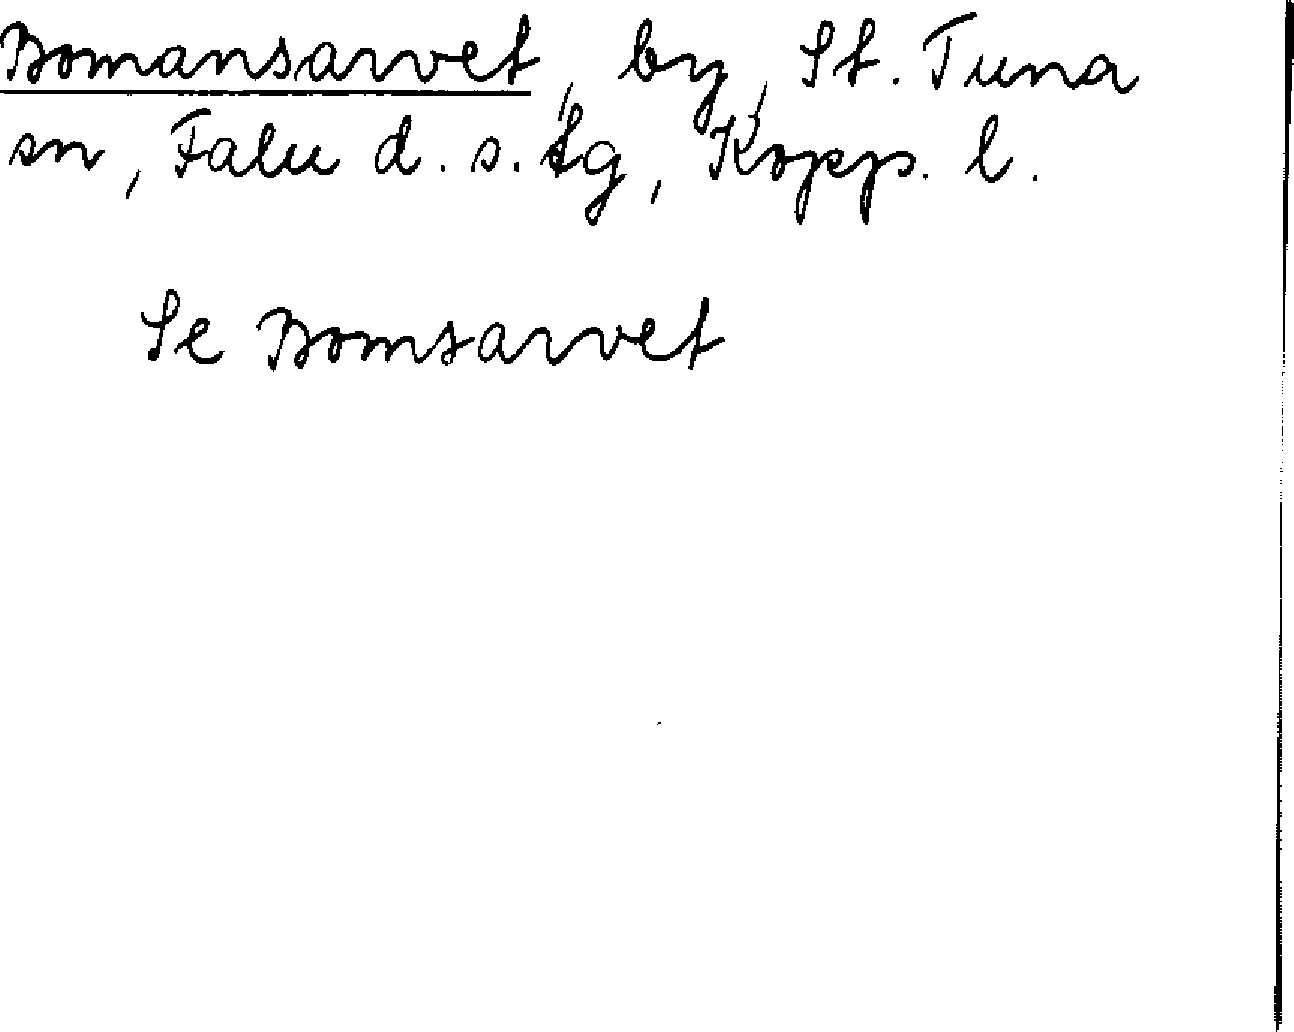 Bomansarvet, by, St. Tuna
sn, Falu d. s. tg, Kopp. l.
Se Bomsarvet